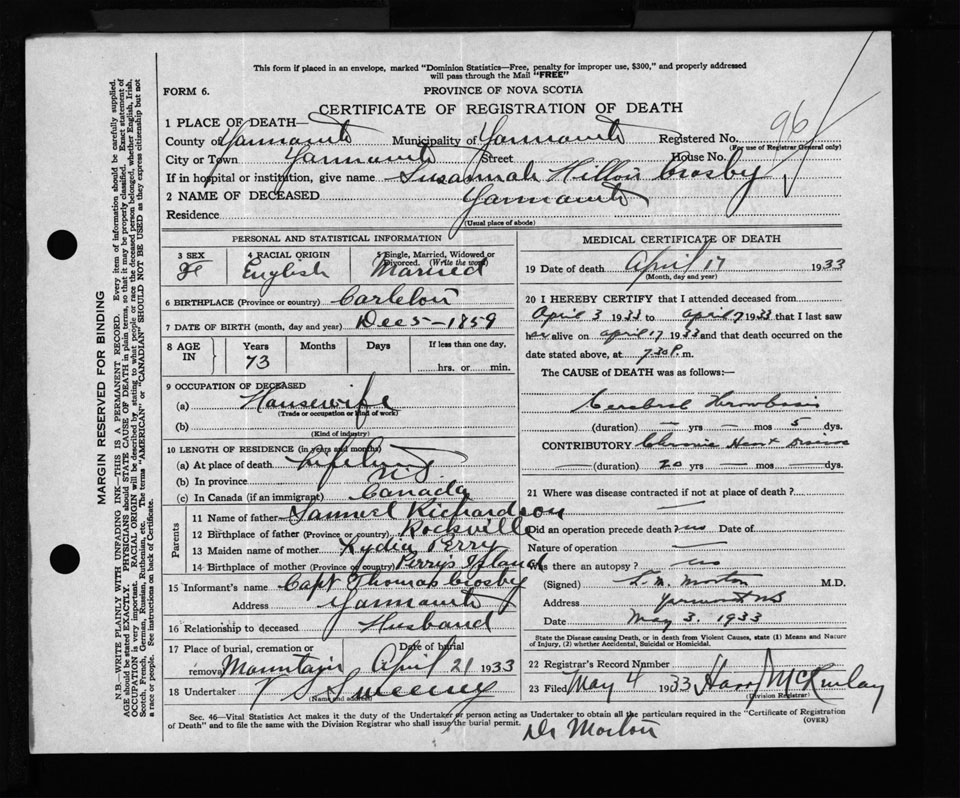 This form if placed in an envelope, marked "Dominion Statistics—Free, penalty for improper use, $300," and properly addressed
will pass through the Mail "FREE"
FORM 6.
PROVINCE OF NOVA SCOTIA
CERTIFICATE OF REGISTRATION OF DEATH
96
1 PLACE OF DEATH—
County of Yarmouth Municipality of Yarmouth Registered No.
(For use of Registrar General only)
City or Town Yarmouth Street House No.
If in hospital or institution, give name Susannah Hilton Crosby
2 NAME OF DECEASED
Residence Yarmouth
(Usual place of abode)
PERSONAL AND STATISTICAL INFORMATION
3 SEX 4 RACIAL ORIGIN 5 Single, Married, Widowed or Divorced. (Write the word)
Fe English Married
6 BIRTHPLACE (Province or country) Carleton
7 DATE OF BIRTH (month, day and year) Dec 5-1859
8 AGE IN Years Months Days If less than one day,
73 hrs. or min.
9 OCCUPATION OF DECEASED
(a) Housewife
(Trade or occupation or kind of work)
(b)
(Kind of industry)
10 LENGTH OF RESIDENCE (in years and months)
(a) At place of death Lifetime
(b) In province
(c) In Canada (if an immigrant) Canada
Parents
11 Name of father Samuel Richardson
12 Birthplace of father (Province or country) Rockville
13 Maiden name of mother Lydia Perry
14 Birthplace of mother (Province or country) Perry's Island
15 Informant's name Capt Thomas Crosby
Address Yarmouth
16 Relationship to deceased Husband
17 Place of burial, cremation or Date of burial
removal Mountain April 21 1933
18 Undertaker V S Sweeny
(Name and address)
MEDICAL CERTIFICATE OF DEATH
19 Date of death April 17 1933
(Month, day and year)
20 I HEREBY CERTIFY that I attended deceased from
April 3 1933 to April 17 1933 that I last saw
her alive on April 17 1933 and that death occurred on
date stated above, at 7.30 P. m.
The CAUSE of DEATH was as follows:
Cerebral Thrombosis
(duration) — yrs — mos 5 dys.
CONTRIBUTORY Chronic Heart Disease
(duration) 20 yrs — mos — dys.
21 Where was disease contracted if not at place of death? —
Did an operation precede death? no Date of.
Nature of operation —
Was there an autopsy? no
(Signed) L. M. Morton M.D.
Address Yarmouth NS
Date May 3. 1933
State the Disease causing Death, or in death from Violent Causes, state (1) Means and Nature
of Injury, (2) whether Accidental, Suicidal or Homicidal.
22 Registrar's Record Number
23 Filed May 4 1933
(Division Registrar)
Sec. 46—Vital Statistics Act makes it the duty of the Undertaker or person acting as Undertaker to obtain all the particulars required in the "Certificate of Registration
of Death" and to file the same with the Division Registrar who shall issue the burial permit.
(OVER)
Dr Morton
MARGIN RESERVED FOR BINDING
N.B. WRITE PLAINLY WITH UNFADING INK—THIS IS A PERMANENT RECORD. Every item of information should be carefully supplied.
AGE should be stated EXACTLY. PHYSICIANS should STATE CAUSE OF DEATH in plain terms, so that it may be properly classified. Exact statement of
OCCUPATION is very important. RACIAL ORIGIN will be described by stating to what people or race the deceased person belonged, whether English, Irish,
Scotch, French, German, Russian, Ruthenian, etc. The terms "AMERICAN" or "CANADIAN" SHOULD NOT BE USED as they express citizenship but not
a race or people. See instructions on back of Certificate.